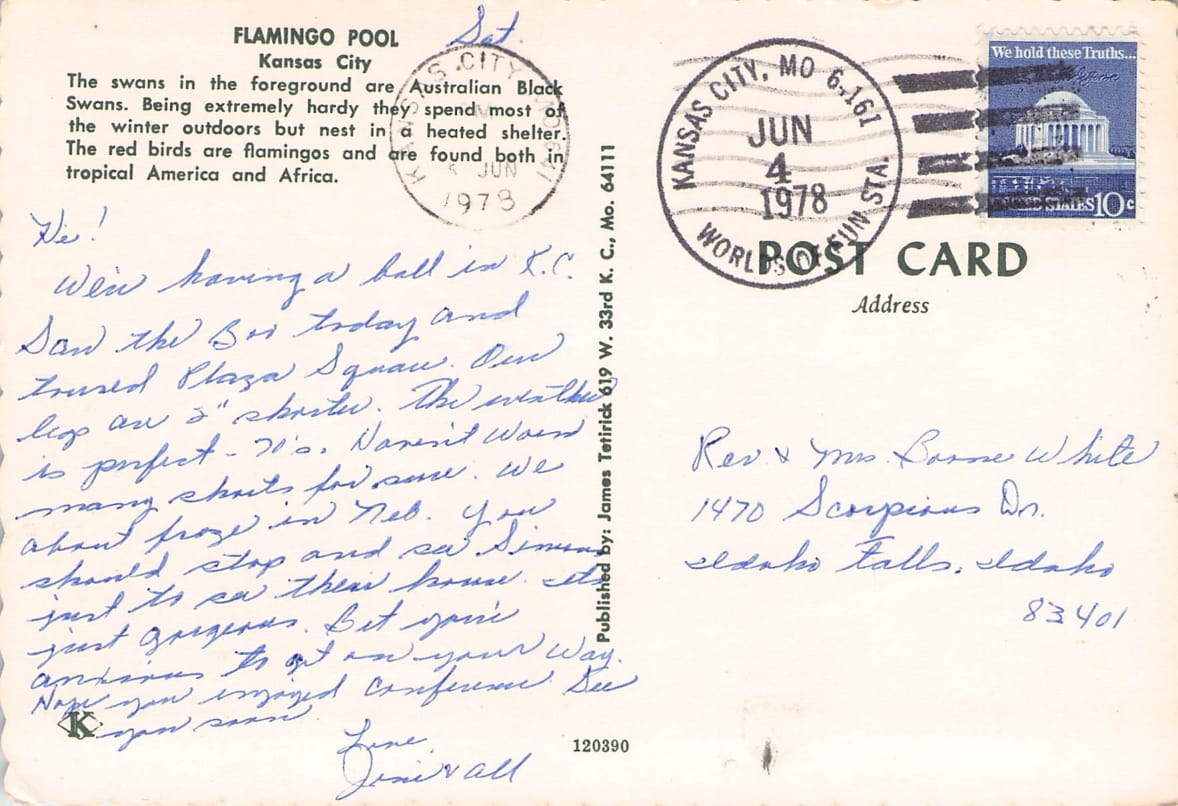 FLAMINGO POOL
Kansas City
The swans in the foreground are Australian Black
Swans. Being extremely hardy they spend most of
the winter outdoors but nest in a heated shelter.
The red birds are flamingos and are found both in
tropical America and Africa.
Sat.
KANSAS CITY
JUN
1978
Hi!
We're having a ball in K.C.
Saw the Zoo today and
toured Plaza Square. Our
legs are 2" shorter. The weather
is perfect - 70's. Haven't worn
many shorts for sure. We
about froze in Neb. You
should stop and see Simons
just to see their house. Its
just gorgeous. Bet you're
anxious to get on your way.
Hope you enjoyed Conference See
you soon.
Love,
Joni & all
K
120390
Published by: James Tetirick 619 W. 33rd K. C., Mo. 64111
KANSAS CITY, MO 64161
JUN
4
1978
WORLDS OF FUN STA.
We hold these Truths...
UNITED STATES 10c
POST CARD
Address
Rev. & Mrs Boone White
1470 Scorpious Dr.
Idaho Falls, Idaho
83401